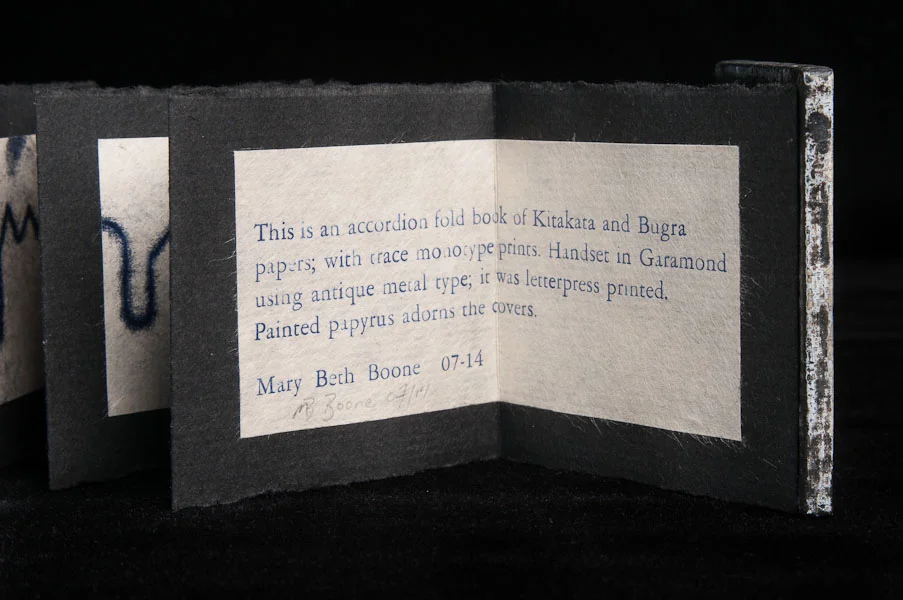 This is an accordion fold book of Kitakata and Bugra
papers; with trace monotype prints. Handset in Garamond
using antique metal type; it was letterpress printed.
Painted papyrus adorns the covers.
Mary Beth Boone 07-14
MB Boone